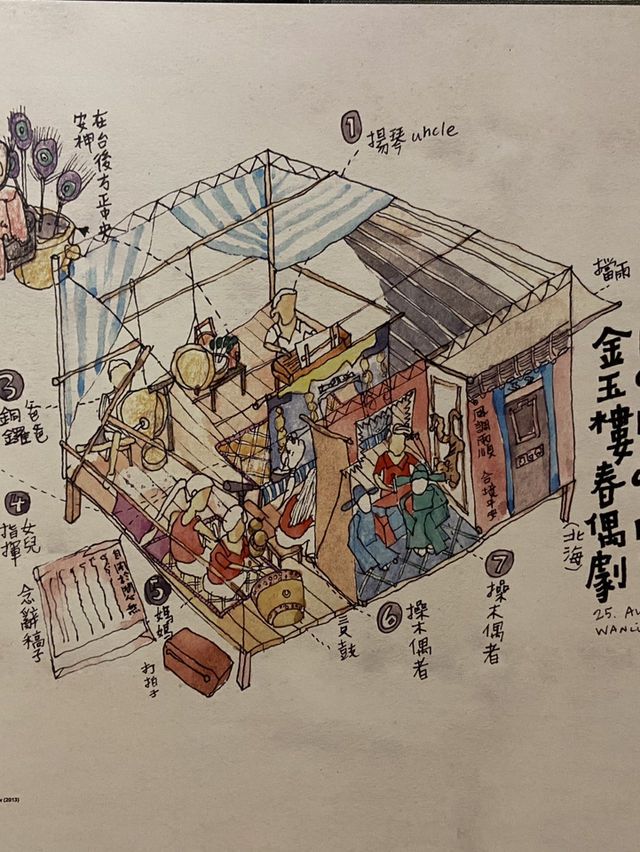 在台後方正中央
安神
1
揚琴 uncle
擋雨
金玉樓春偶劇
(北海)
25. AU
WANLI
3
銅鑼
爸爸
4
女兒
指揮
念辭稿子
5
媽媽
打拍子
鼓
6
操木偶者
7
操木偶者
風調雨順
(2013)